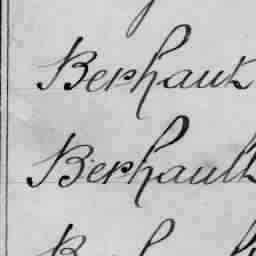 Berhaut
Berhault